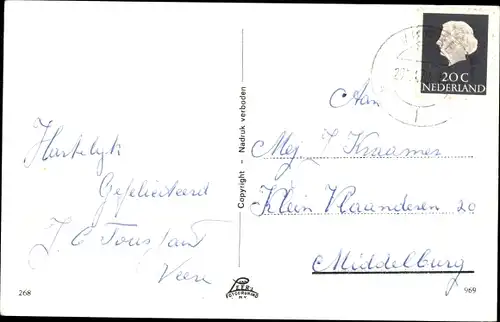 Hartelyk
Gefeliciteerd
J. C Toussaint
Veere
268
Copyright - Nadruk verboden
FOTOGRAFIE
N.V.
20 C
NEDERLAND
Aan
Mej. J Kraamer
Klein Vlaanderen 20
Middelburg
969